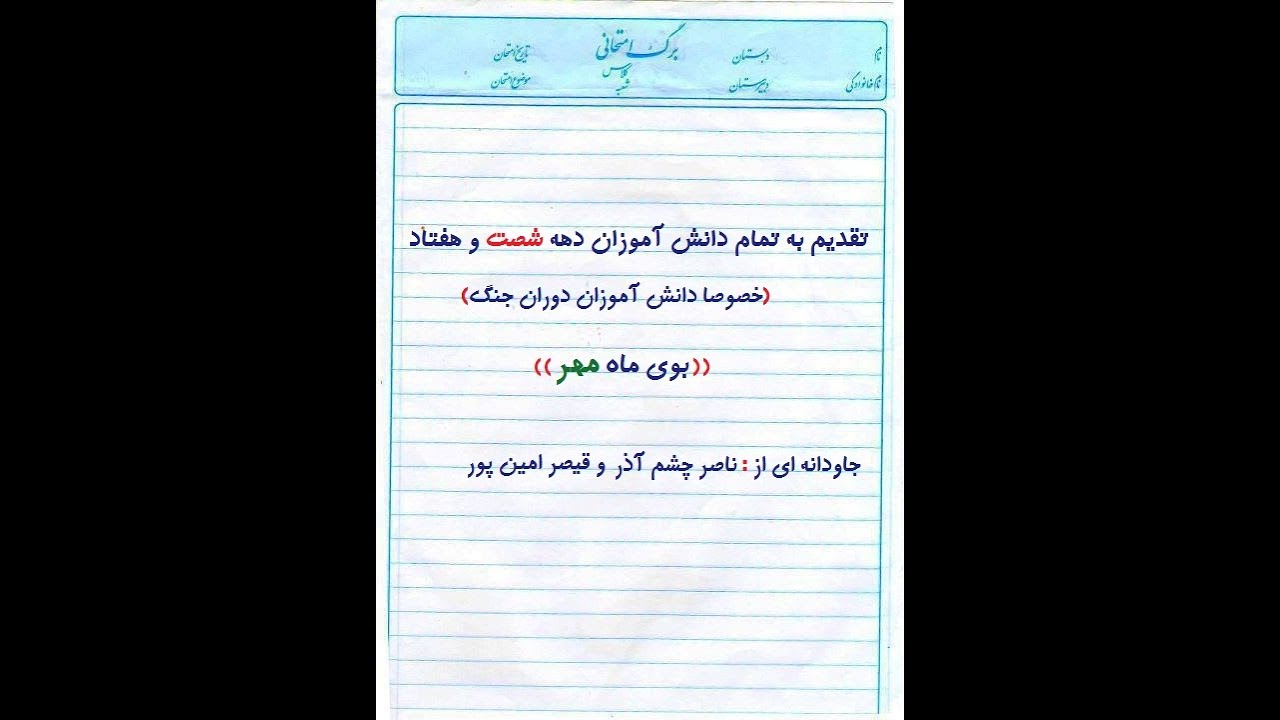 نام دبستان برگ امتحانی تاریخ امتحان
نام خانوادگی دبیرستان کلاس موضوع امتحان
شعبه
تقدیم به تمام دانش آموزان دهه شصت و هفتاد
(خصوصا دانش آموزان دوران جنگ)
((بوی ماه مهر))
جاودانه ای از : ناصر چشم آذر و قیصر امین پور